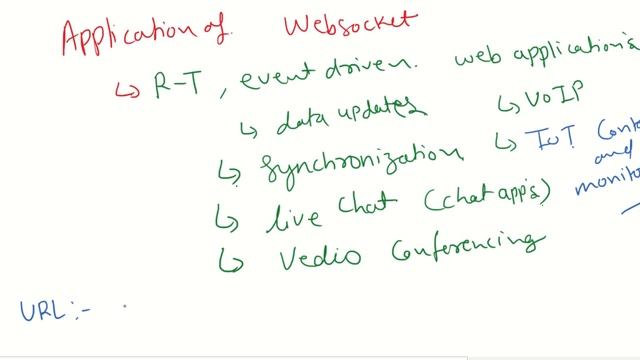 Application of. Websocket
↳ R-T, event driven. web application's
↳ data updates
↳ VOIP
↳ Synchronization
↳ IoT
and
↳ live chat (chat app's)
↳ Vedio Conferencing
URL:-